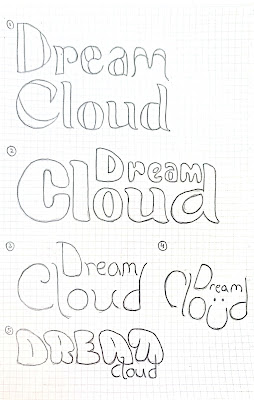 1
Dream
Cloud
2
Dream
Cloud
3
Dream
Cloud
4
Dream
Cloud
5
DREAM
cloud